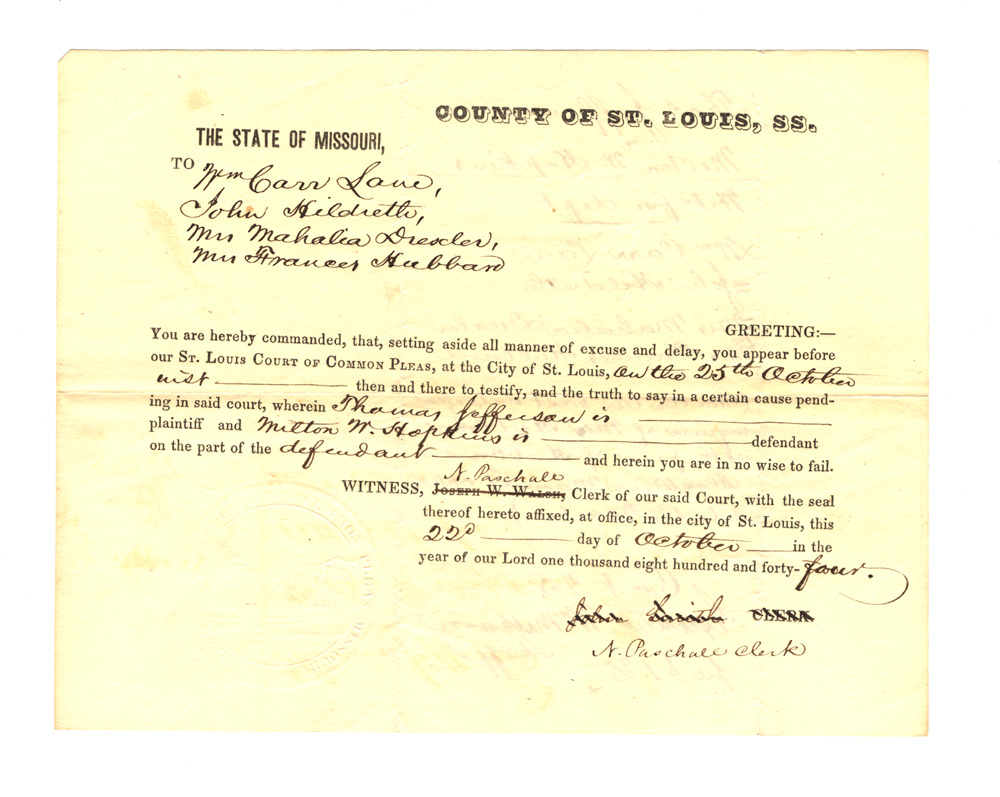 COUNTY OF ST. LOUIS, SS.
THE STATE OF MISSOURI,
TO Wm Carr Lane,
John Hildreth,
Mrs Mahalia Drexler,
Mrs Frances Hubbard
GREETING:—
You are hereby commanded, that, setting aside all manner of excuse and delay, you appear before
our ST. LOUIS COURT OF COMMON PLEAS, at the City of St. Louis, on the 25th October
inst — then and there to testify, and the truth to say in a certain cause pend-
ing in said court, wherein Thomas Jefferson is —
plaintiff and Milton W. Hopkins is — defendant
on the part of the defendant — and herein you are in no wise to fail.
N. Paschall
WITNESS, JOSEPH W. WALSH, Clerk of our said Court, with the seal
thereof hereto affixed, at office, in the city of St. Louis, this
22d — day of October — in the
year of our Lord one thousand eight hundred and forty-four.
John Smith CLERK
N. Paschall Clerk